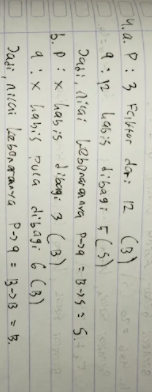 4. a. P : 3 Faktor dari 12 (B)
q : 12 habis dibagi 5 (S)
Jadi, nilai kebenarannya P→q = B→S = S.
b. P : x habis dibagi 3 (B)
q : x habis pula dibagi 6 (B)
Jadi, nilai kebenarannya P→q = B→B = B.